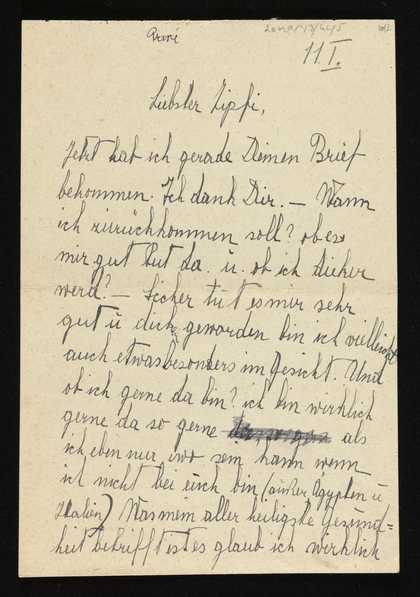 11 I.
Liebster Zipfi,
Jetzt hab ich gerade Deinen Brief
bekommen. Ich dank Dir. — Wann
ich zurückkommen soll? ob es
mir gut tut da. u. ob ich dicker
werd? — Sicher tut es mir sehr
gut u dick geworden bin ich vielleicht
auch etwas besonders im Gesicht. Und
ob ich gerne da bin? ich bin wirklich
gerne da so gerne als
ich eben nur wo sein kann wenn
ich nicht bei euch bin (außer Ägypten u
Italien) Was mein aller heiligste Gesund-
heit betrifft ist es glaub ich wirklich